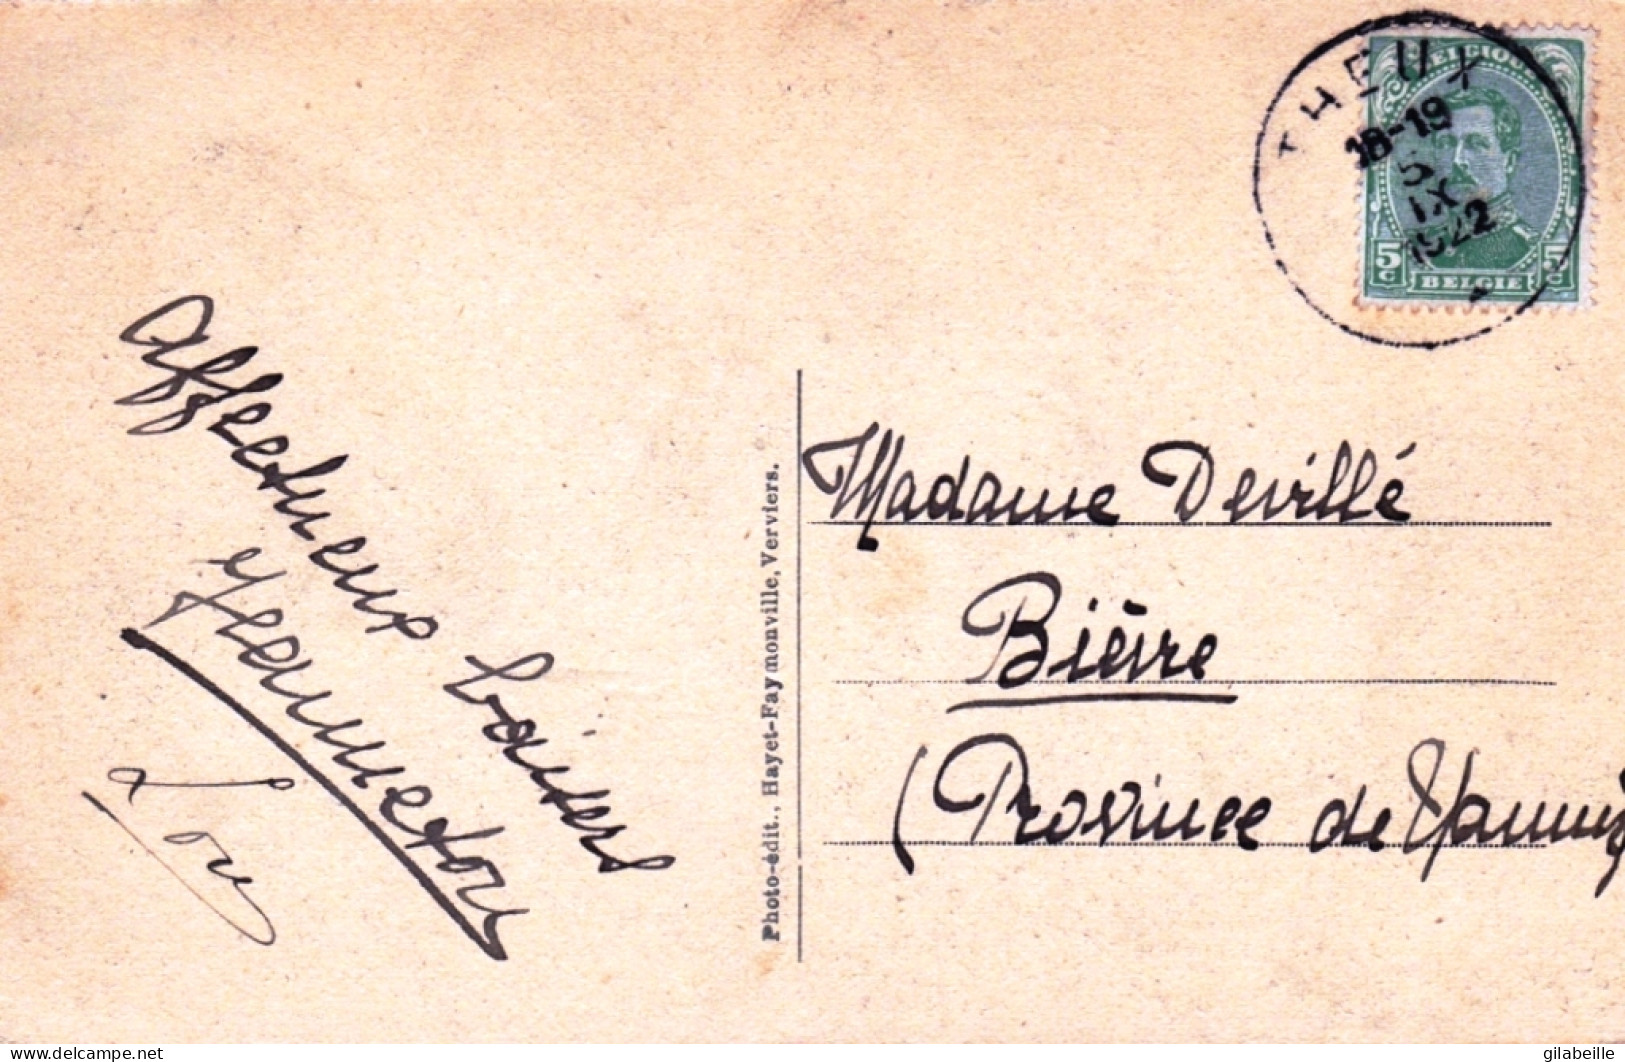 THEUX
18-19
5
IX
1922
BELGIQUE
5c 5c
BELGIE
Affectueux baisers
Jeanneton
Lou
Photo-édit.. Hayet-Faymonville, Verviers.
Madame Devillé
Bièvre
(Province de Namur
www.delcampe.net
gilabeille